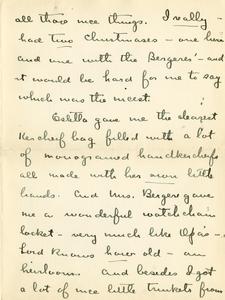 all those nice things. I really -
had two Christmases - one here
and one with the Bergeres - and
it would be hard for me to say
which was the nicest.
Estella gave me the dearest
Kerchief bag filled with a lot
of monogramed handkerchiefs
all made with her own little
hands. And Mrs. Bergere gave
me a wonderful watch chain
locket - very much like
Lord Knows how old - an
heirloom. And besides I got
a lot of nice little trinkets from